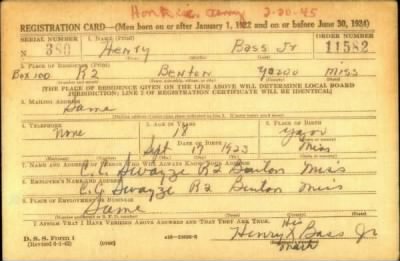 Hon Disc Army 2-20-45
REGISTRATION CARD—(Men born on or after January 1, 1922 and on or before June 30, 1924)
SERIAL NUMBER 1. NAME (Print) ORDER NUMBER
N 380 Henry Bass Jr 11582
2. PLACE OF RESIDENCE (Print)
Box 100 R2 Benton Yazoo Miss
[THE PLACE OF RESIDENCE GIVEN ON THE LINE ABOVE WILL DETERMINE LOCAL BOARD
JURISDICTION; LINE 2 OF REGISTRATION CERTIFICATE WILL BE IDENTICAL]
3. MAILING ADDRESS
Same
[Mailing address if other than place indicated on line 2. If same insert word same]
4. TELEPHONE 5. AGE IN YEARS 6. PLACE OF BIRTH
None 18 Yazoo
DATE OF BIRTH
17 1923 Miss
7. NAME AND ADDRESS OF PERSON WHO WILL ALWAYS KNOW YOUR ADDRESS
C. C. Swayze R2 Benton Miss
8. EMPLOYER'S NAME AND ADDRESS
C. C. Swayze R2 Benton Miss
9. PLACE OF EMPLOYMENT OR BUSINESS
Same
I AFFIRM THAT I HAVE VERIFIED ABOVE ANSWERS AND THAT THEY ARE TRUE.
His
D. S. S. Form 1 Henry X Bass Jr
(Revised 6-1-42) (over) mark